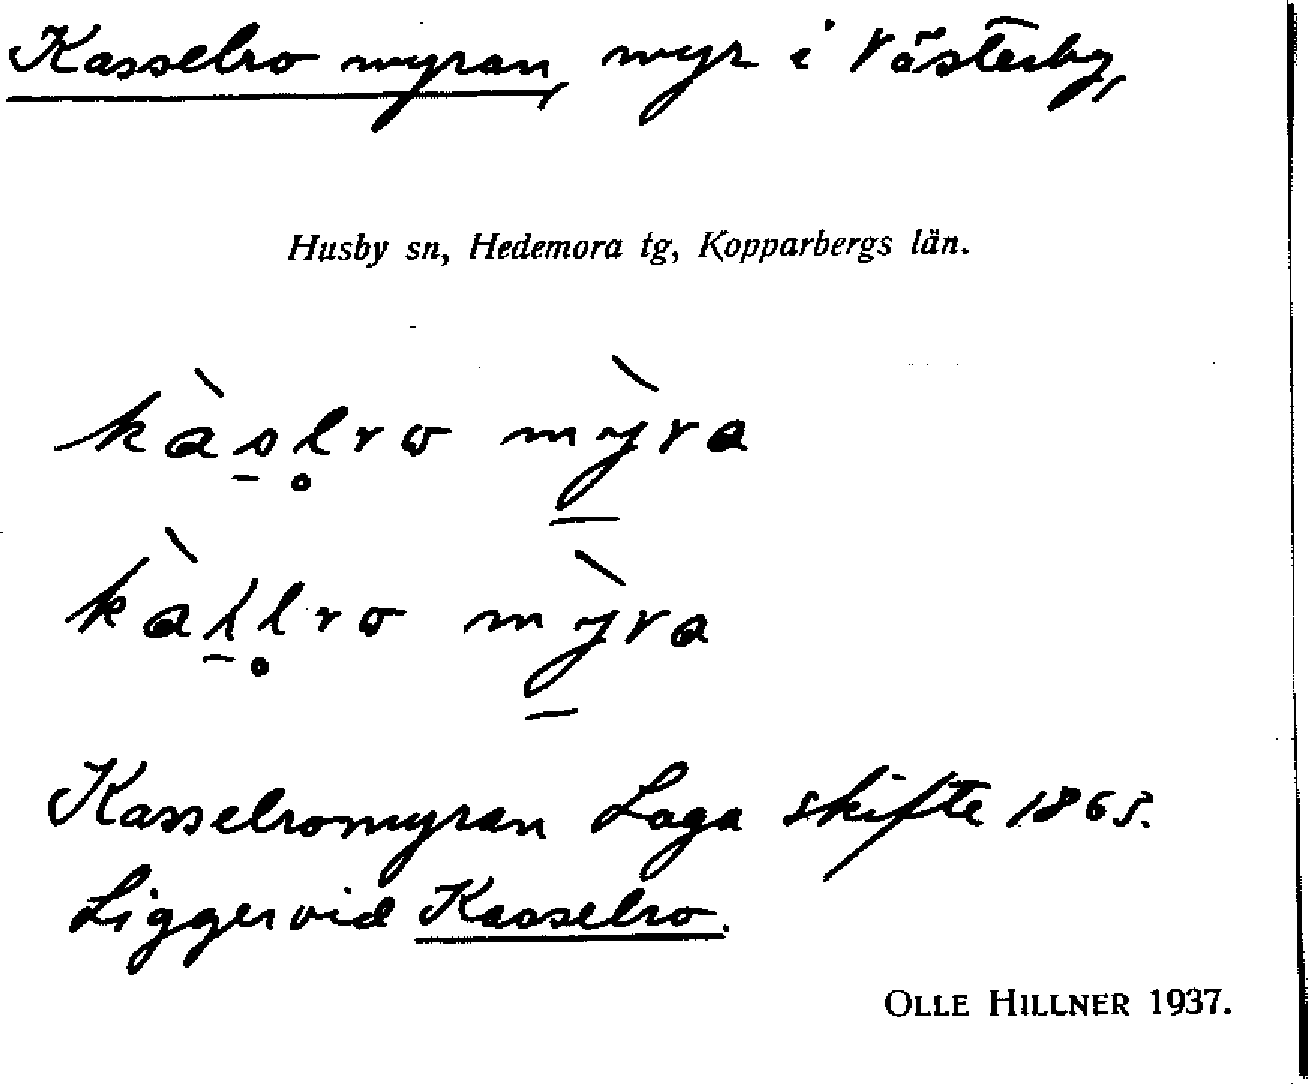 Kasselro myran, myr i Västerby,
Husby sn, Hedemora tg, Kopparbergs län.
kàs̠l̥ro mỳ̠ra
mỳ̠ra
Kasselromyran Laga skifte 1865.
Ligger vid Kasselro.
OLLE HILLNER 1937.